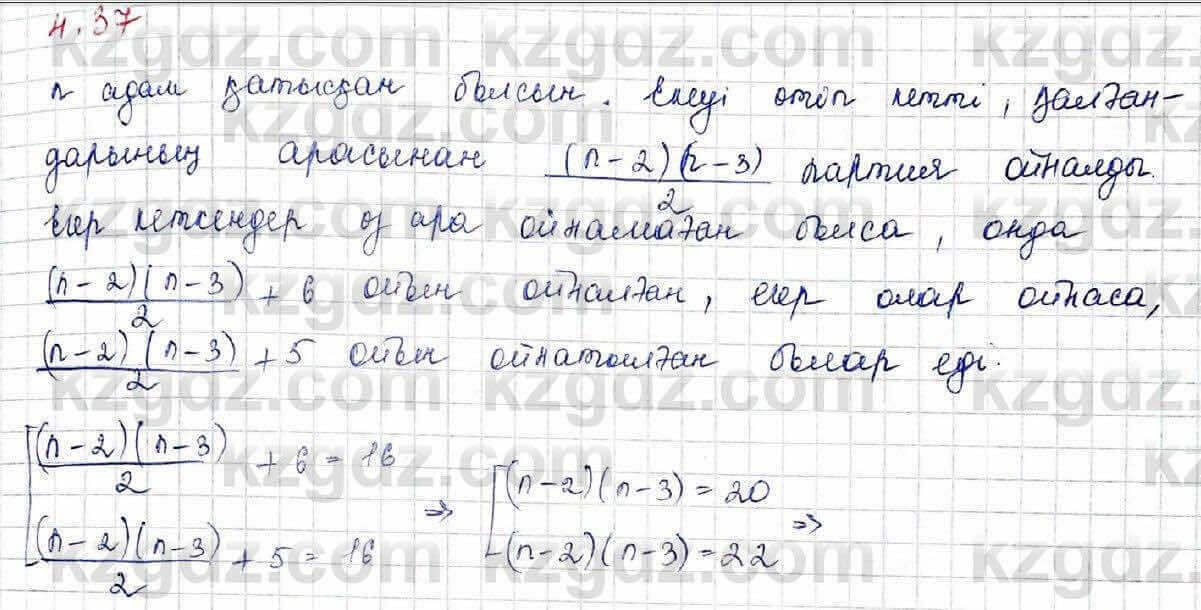 4.37
n адам қатысқан болсын. Екеуі өтіп кетті, қалған-
дарының арасынан (n-2)(n-3)/2 партия ойналды.
Егер кеткендер өз ара ойнамаған болса, онда
(n-2)(n-3)/2 + 6 ойын ойналған, егер олар ойнаса,
(n-2)(n-3)/2 + 5 ойын ойнатылған болар еді.
[(n-2)(n-3)/2 + 6 = 16
(n-2)(n-3)/2 + 5 = 16 ⇒ [(n-2)(n-3) = 20
(n-2)(n-3) = 22 ⇒
kzgdz.com